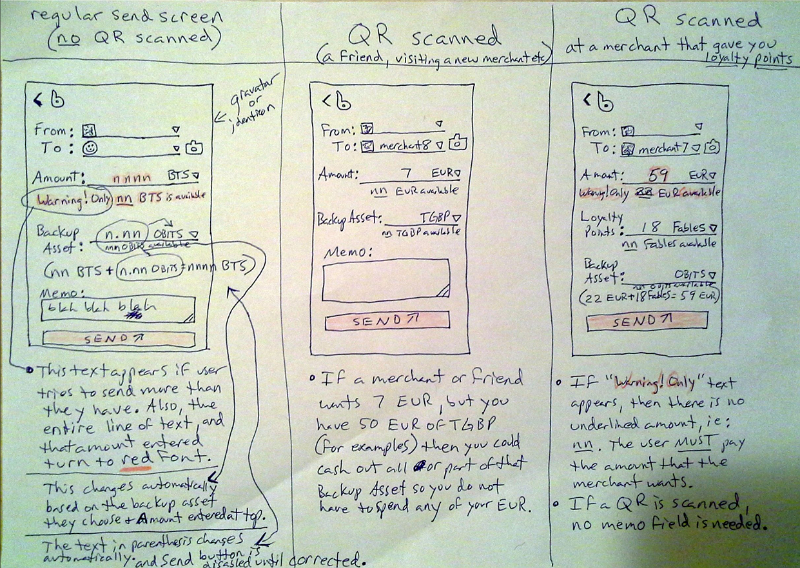 regular send screen
(no QR scanned)
gravatar
or
identicon
From:
To:
Amount: nnnn BTS
Warning! Only nn BTS is available
Backup
Asset: n.nn OBITS
nn OBITS available
(nn BTS + n.nn OBITS = nnnn BTS)
Memo:
blah blah blah
SEND
• This text appears if user
tries to send more than
they have. Also, the
entire line of text, and
that amount entered
turn to red font.
This changes automatically
based on the backup asset
they choose + Amount entered at top.
The text in parenthesis changes
automatically. and Send button is
disabled until corrected.
QR scanned
(a friend, visiting a new merchant etc)
From:
To: merchant8
Amount: 7 EUR
nn EUR available
Backup Asset: TGBP
nn TGBP available
Memo:
SEND
• If a merchant or friend
wants 7 EUR, but you
have 50 EUR of TGBP
(for examples) then you could
cash out all or part of that
Backup Asset so you do not
have to spend any of your EUR.
QR scanned
at a merchant that gave you
loyalty points
From:
To: merchant7
Amount: 59 EUR
Warning! Only 22 EUR available
Loyalty
Points: 18 Fables
nn Fables available
Backup
Asset: OBITS
nn OBITS available
(22 EUR + 18 Fables = 59 EUR)
SEND
• If "Warning! Only" text
appears, then there is no
underlined amount, ie:
nn. The user MUST pay
the amount that the
merchant wants.
• If a QR is scanned,
no memo field is needed.